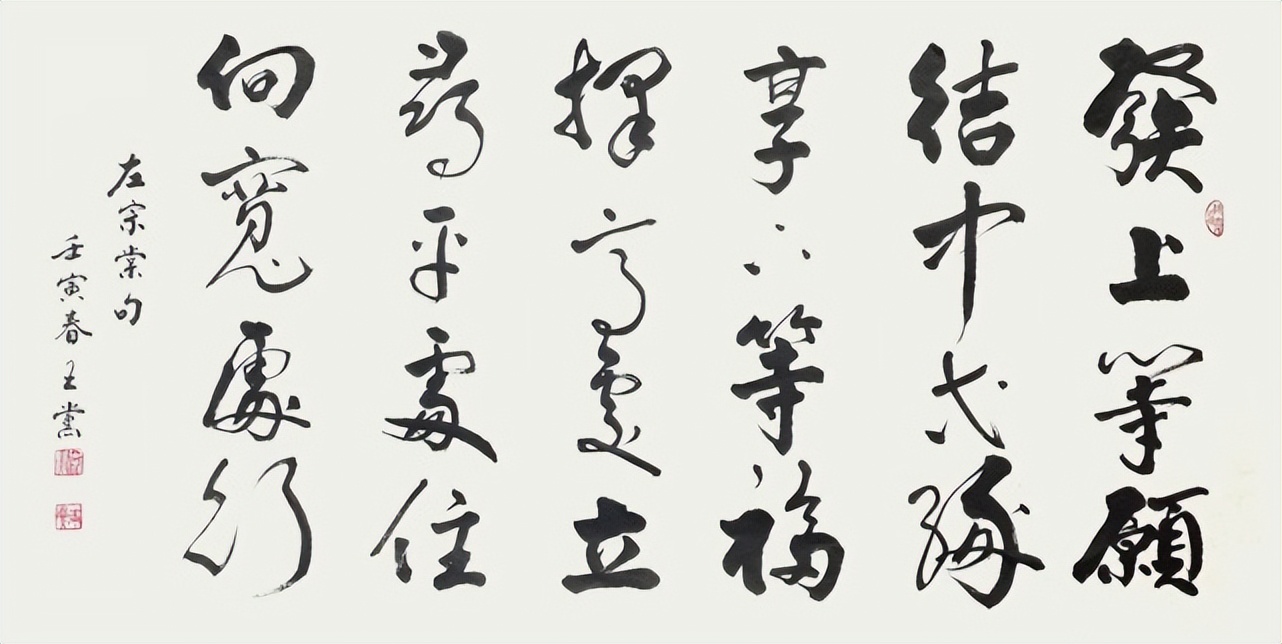 發上等願
結中等緣
享下等福
擇高處立
尋平處住
向寬處行
左宗棠句
壬寅春王黨